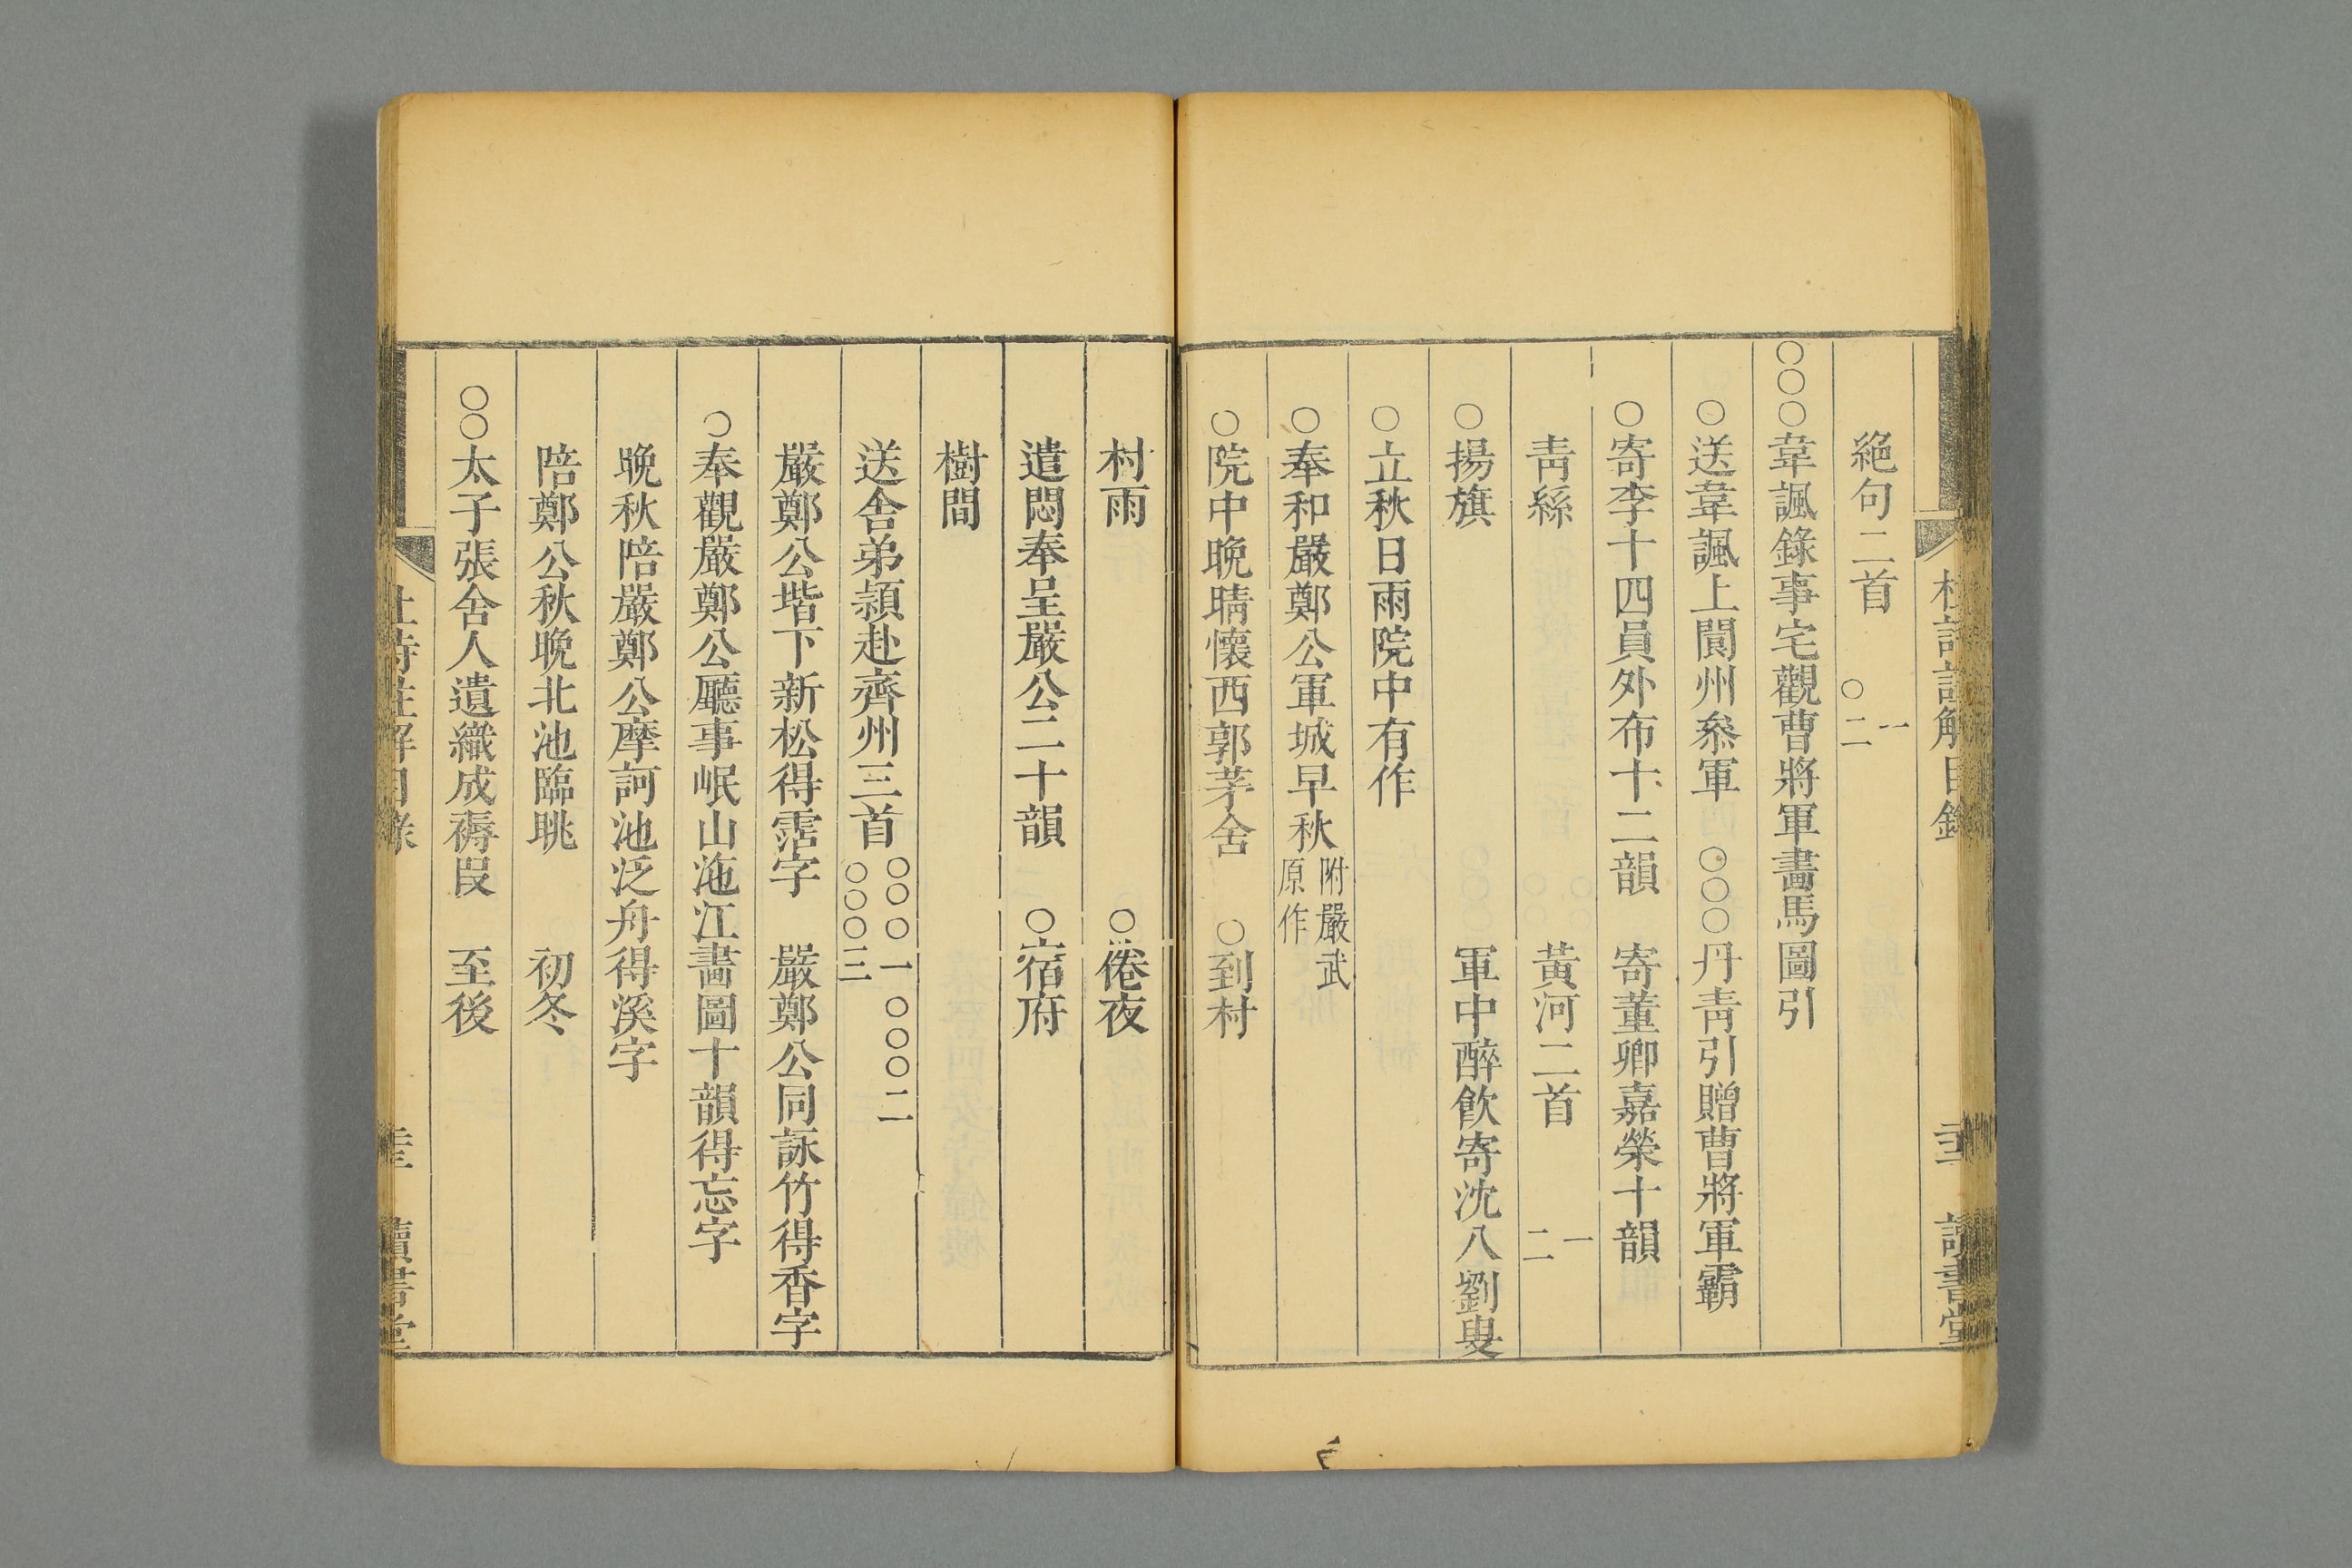 絕句二首　一　○二
○○○韋諷錄事宅觀曹將軍畫馬圖引
○送韋諷上閬州叅軍　○○○丹靑引贈曹將軍霸
○寄李十四員外布十二韻　寄董卿嘉榮十韻
靑絲　黃河二首　一　二
○揚旗　軍中醉飮寄沈八劉叟
○立秋日雨院中有作
○奉和嚴鄭公軍城早秋　附嚴武原作
○院中晚晴懷西郭茅舍　○到村
村雨　○倦夜
遣悶奉呈嚴公二十韻　○宿府
樹間
送舍弟頴赴齊州三首　○○○一　○○○二　○○○三
嚴鄭公堦下新松得霑字　嚴鄭公同詠竹得香字
○奉觀嚴鄭公廳事岷山沲江畵圖十韻得忘字
晚秋陪嚴鄭公摩訶池泛舟得溪字
陪鄭公秋晚北池臨眺　初冬
○○太子張舍人遺織成褥叚　至後